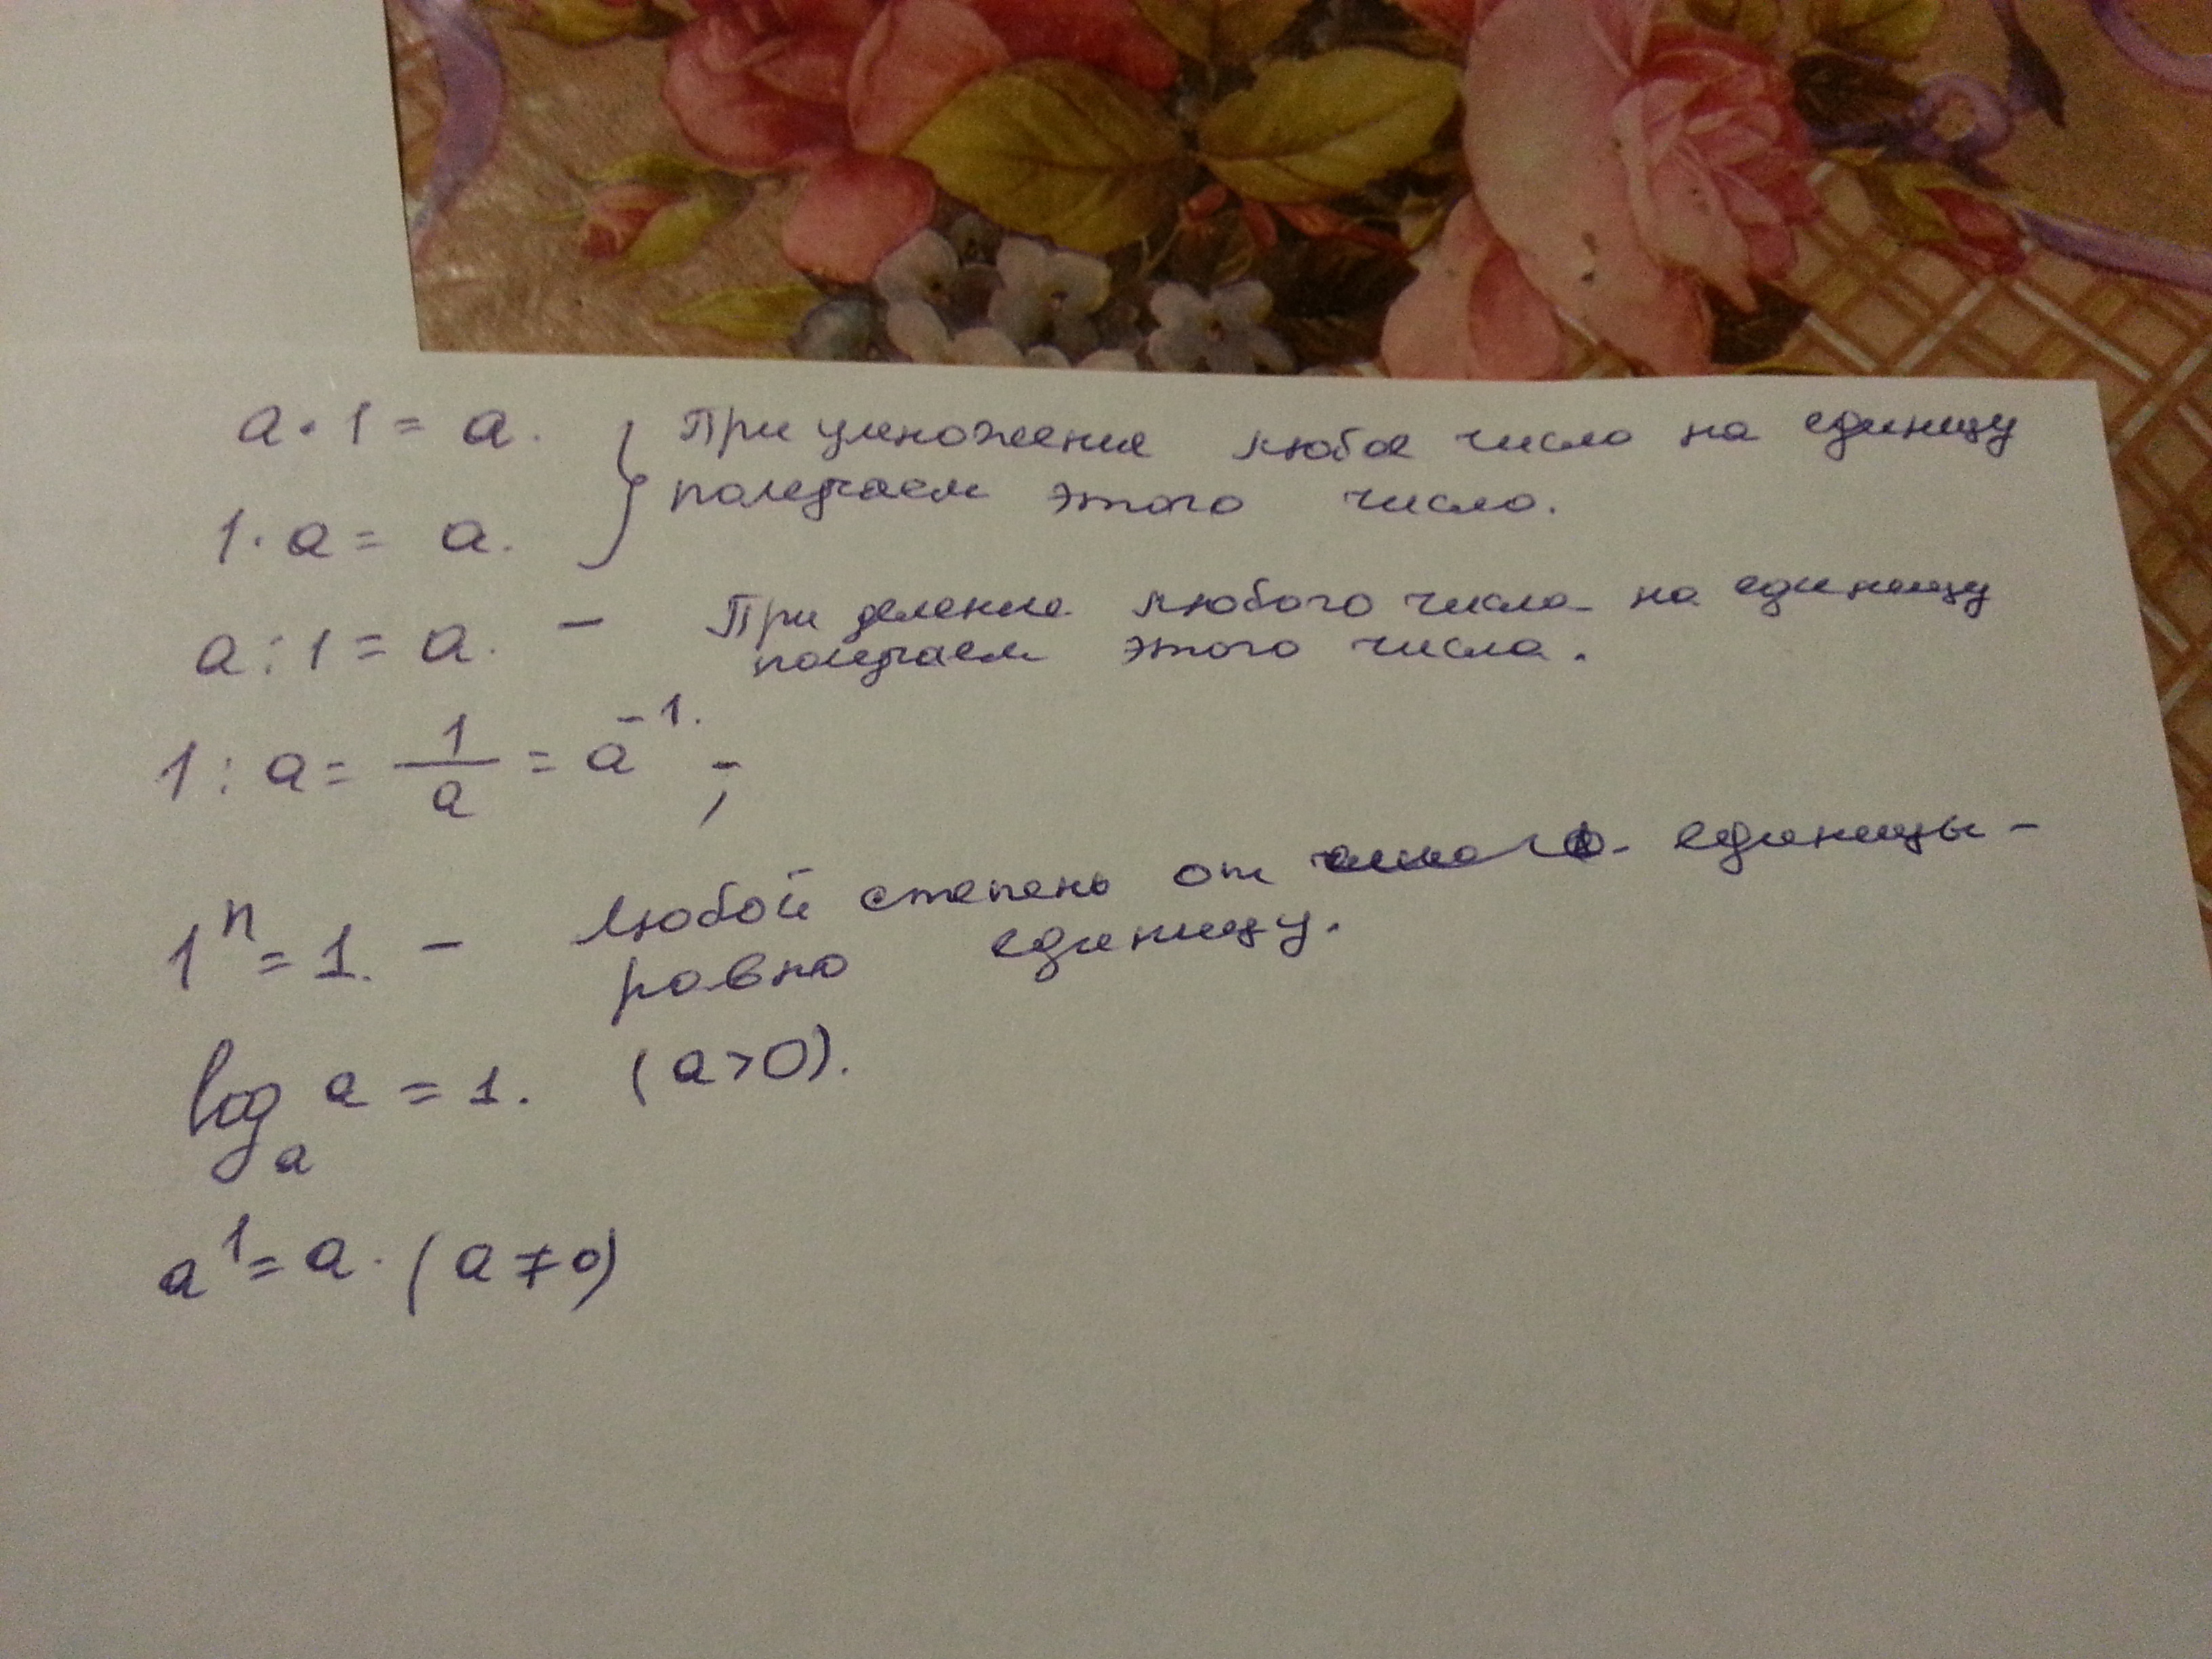 a · 1 = a. } При умножение любое число на единицу
получаем этого число.
1 · a = a.
a : 1 = a. – При деление любого числа на единицу
получаем этого числа.
1 : a = 1/a = a⁻¹. ;
1ⁿ = 1. – Любой степень от единицы –
равно единицу.
logₐ a = 1. (a > 0).
a¹ = a. (a ≠ 0)